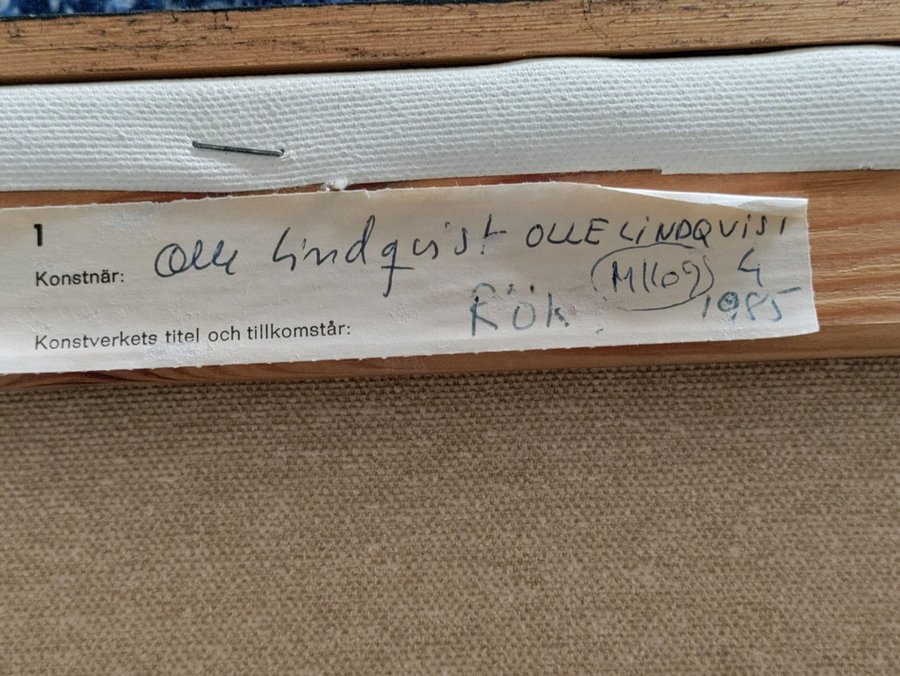 1
Konstnär: Olle Lindqvist OLLE LiNDQViST
4
Konstverkets titel och tillkomstår: Rök. 1985